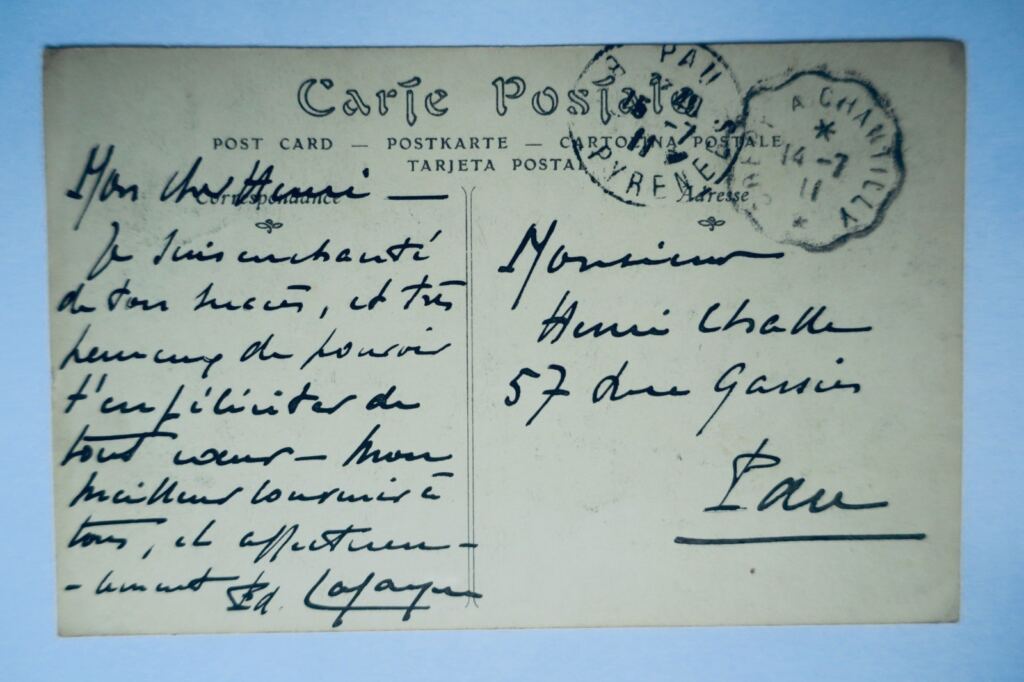 Carte Postale
POST CARD — POSTKARTE — CARTOLINA POSTALE
TARJETA POSTAL
Correspondance
Adresse
PAU
15 - 7
11
PYRENEES
A CHANTILLY
14 - 7
11
Mon cher Henri —
Je suis enchanté
de ton succès, et très
heureux de pouvoir
t'en féliciter de
tout cœur — Mon
meilleur souvenir à
tous, et affectueu-
-sement Ed.
Monsieur
Henri Challe
57 Rue Gassies
Pau